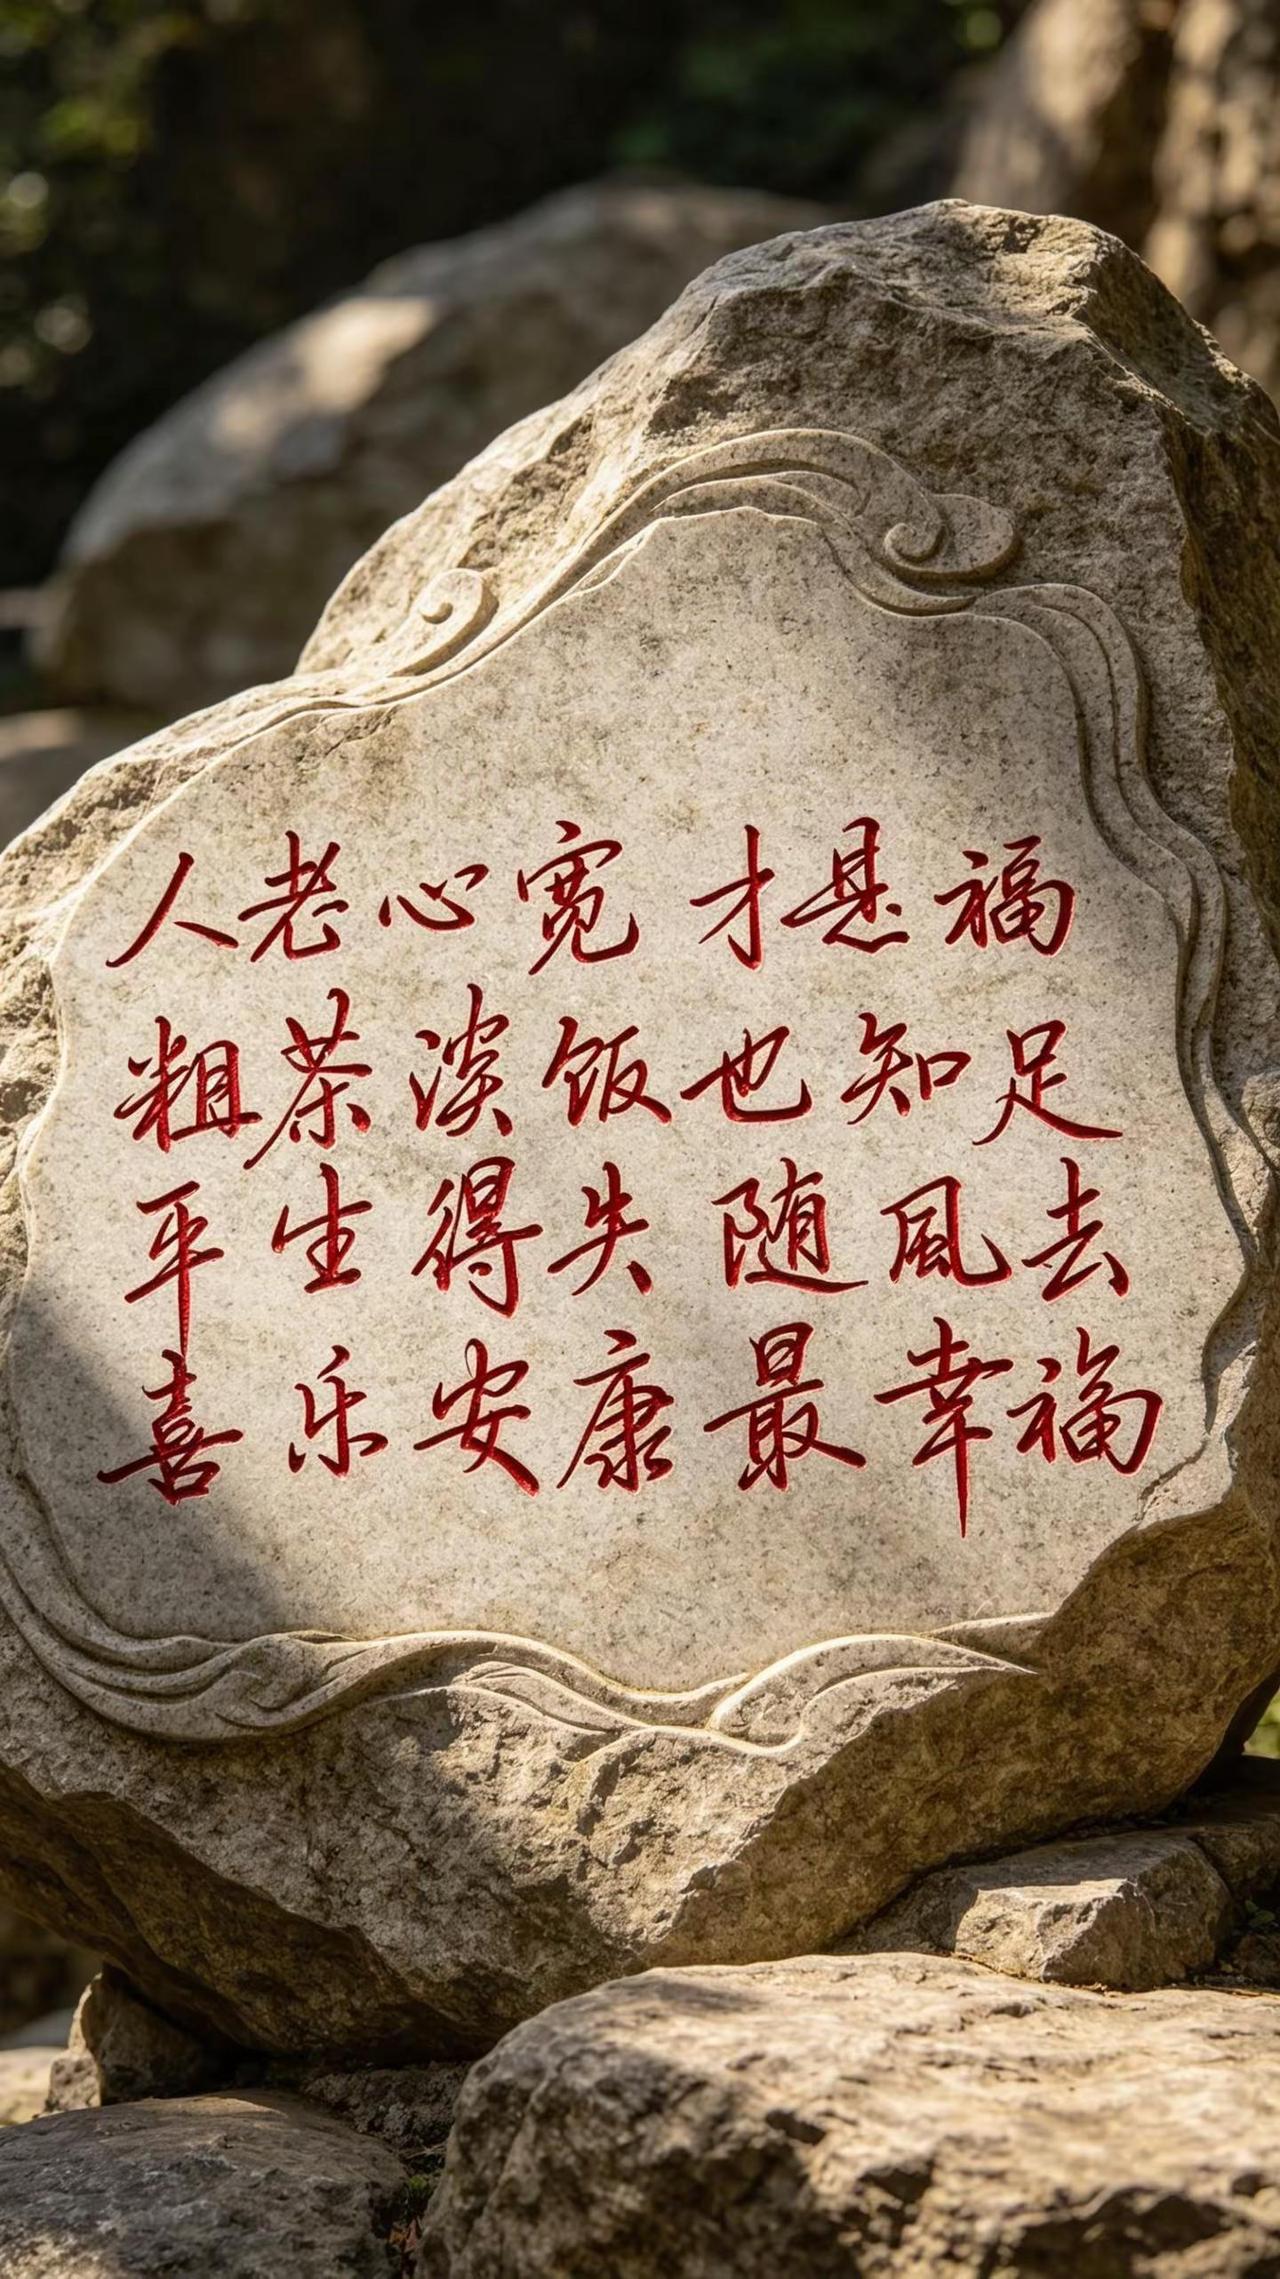 人老心宽才是福
粗茶淡饭也知足
平生得失随風去
喜乐安康最幸福